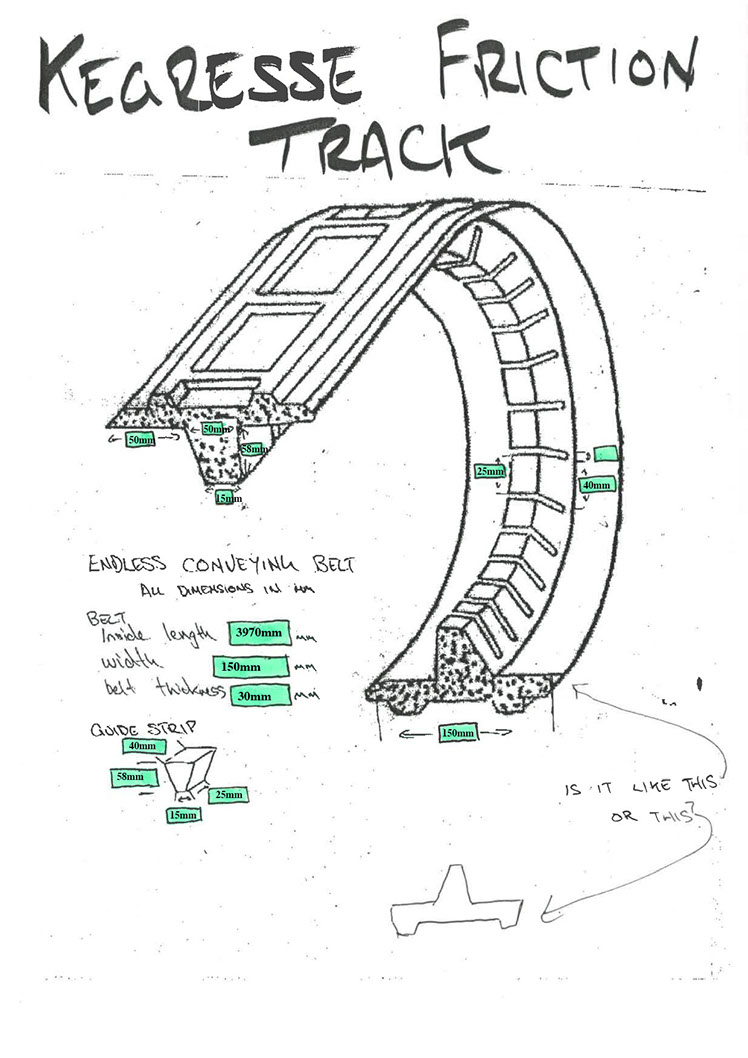 KEGRESSE FRICTION
TRACK
50mm
50mm
58mm
15mm
25mm
40mm
ENDLESS CONVEYING BELT
ALL DIMENSIONS IN mm
BELT
Inside length 3970mm mm
width 150mm mm
belt thickness 30mm mm
GUIDE STRIP
40mm
58mm
25mm
15mm
150mm
IS IT LIKE THIS
OR THIS?